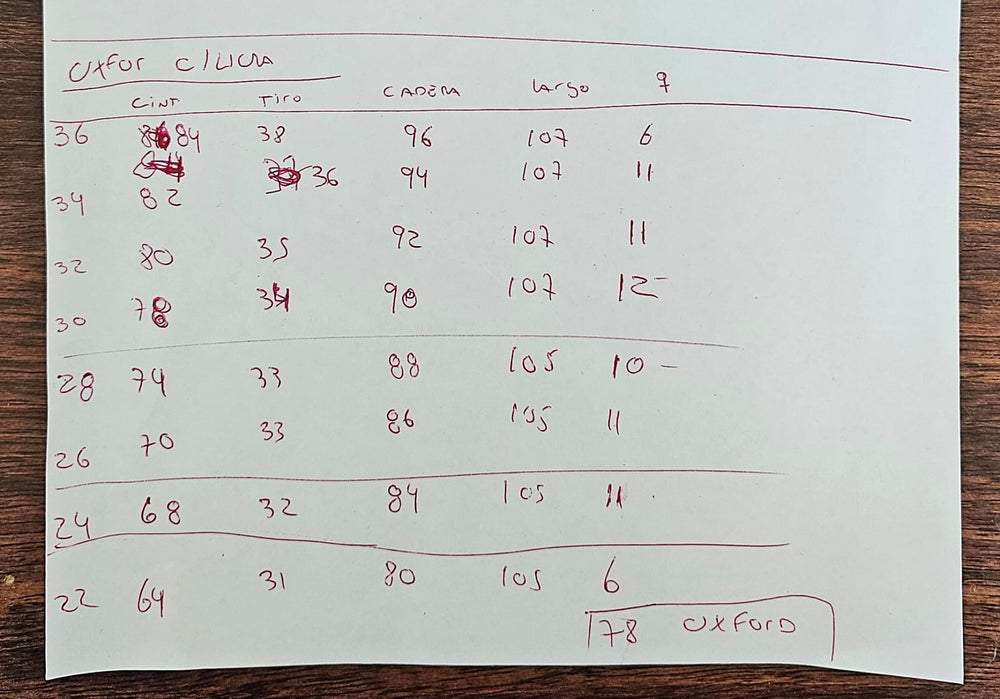 OXFOR C/LICRA
CINT TIRO CADERA Largo 9
36 84 38 96 107 6
34 82 36 94 107 11
32 80 35 92 107 11
30 78 34 90 107 12
28 74 33 88 105 10 -
26 70 33 86 105 11
24 68 32 84 105 11
22 64 31 80 105 6
78 OXFORD